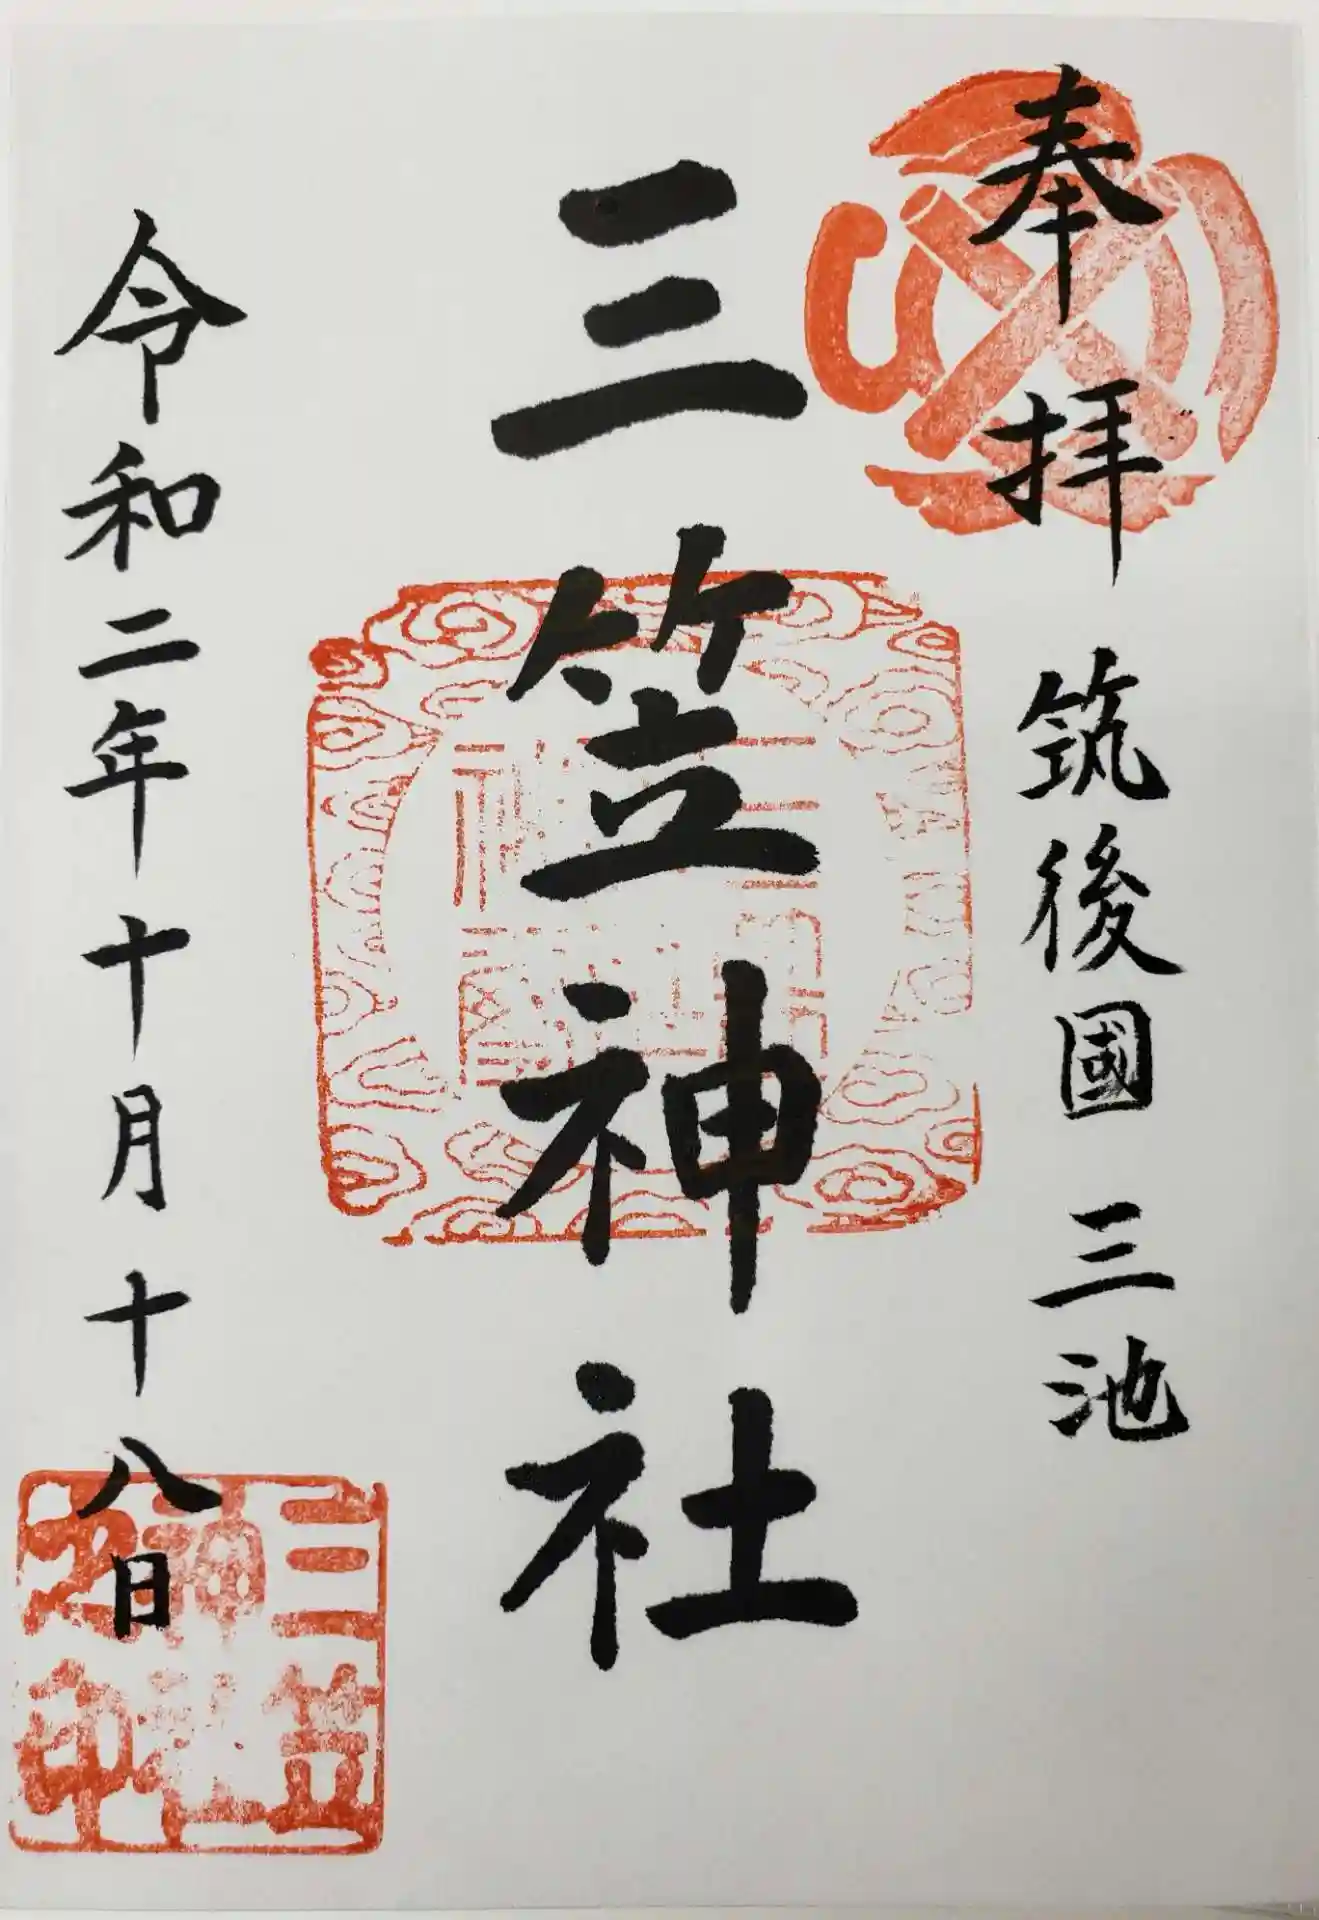 奉拝 筑後國 三池
三笠神社
令和二年十月十八日
三笠
神社
之印